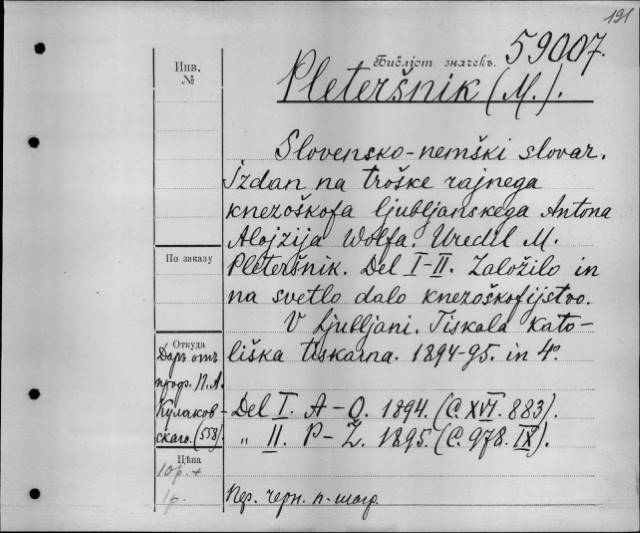 191
59007.
Библіот. значекъ.
Инв.
№
Pleteršnik (M.).
Slovensko-nemški slovar.
Izdan na troške rajnega
knezoškofa ljubljanskega Antona
Alojzija Wolfa. Uredil M.
По заказу
Pleteršnik. Del I-II. Založilo in
na svetlo dalo knezoškofijstvo.
V Ljubljani. Tiskala Kato-
Откуда
liška tiskarna. 1894-95. in 4°.
Даръ отъ
проф. П. А.
Кулаков-
скаго. (558).
Del I. A-O. 1894. (C. XVI. 883).
„ II. P-Ž. 1895. (C. 978. IX).
Цѣна
10р. +
1р.
Пер. черн. п.-шагр.